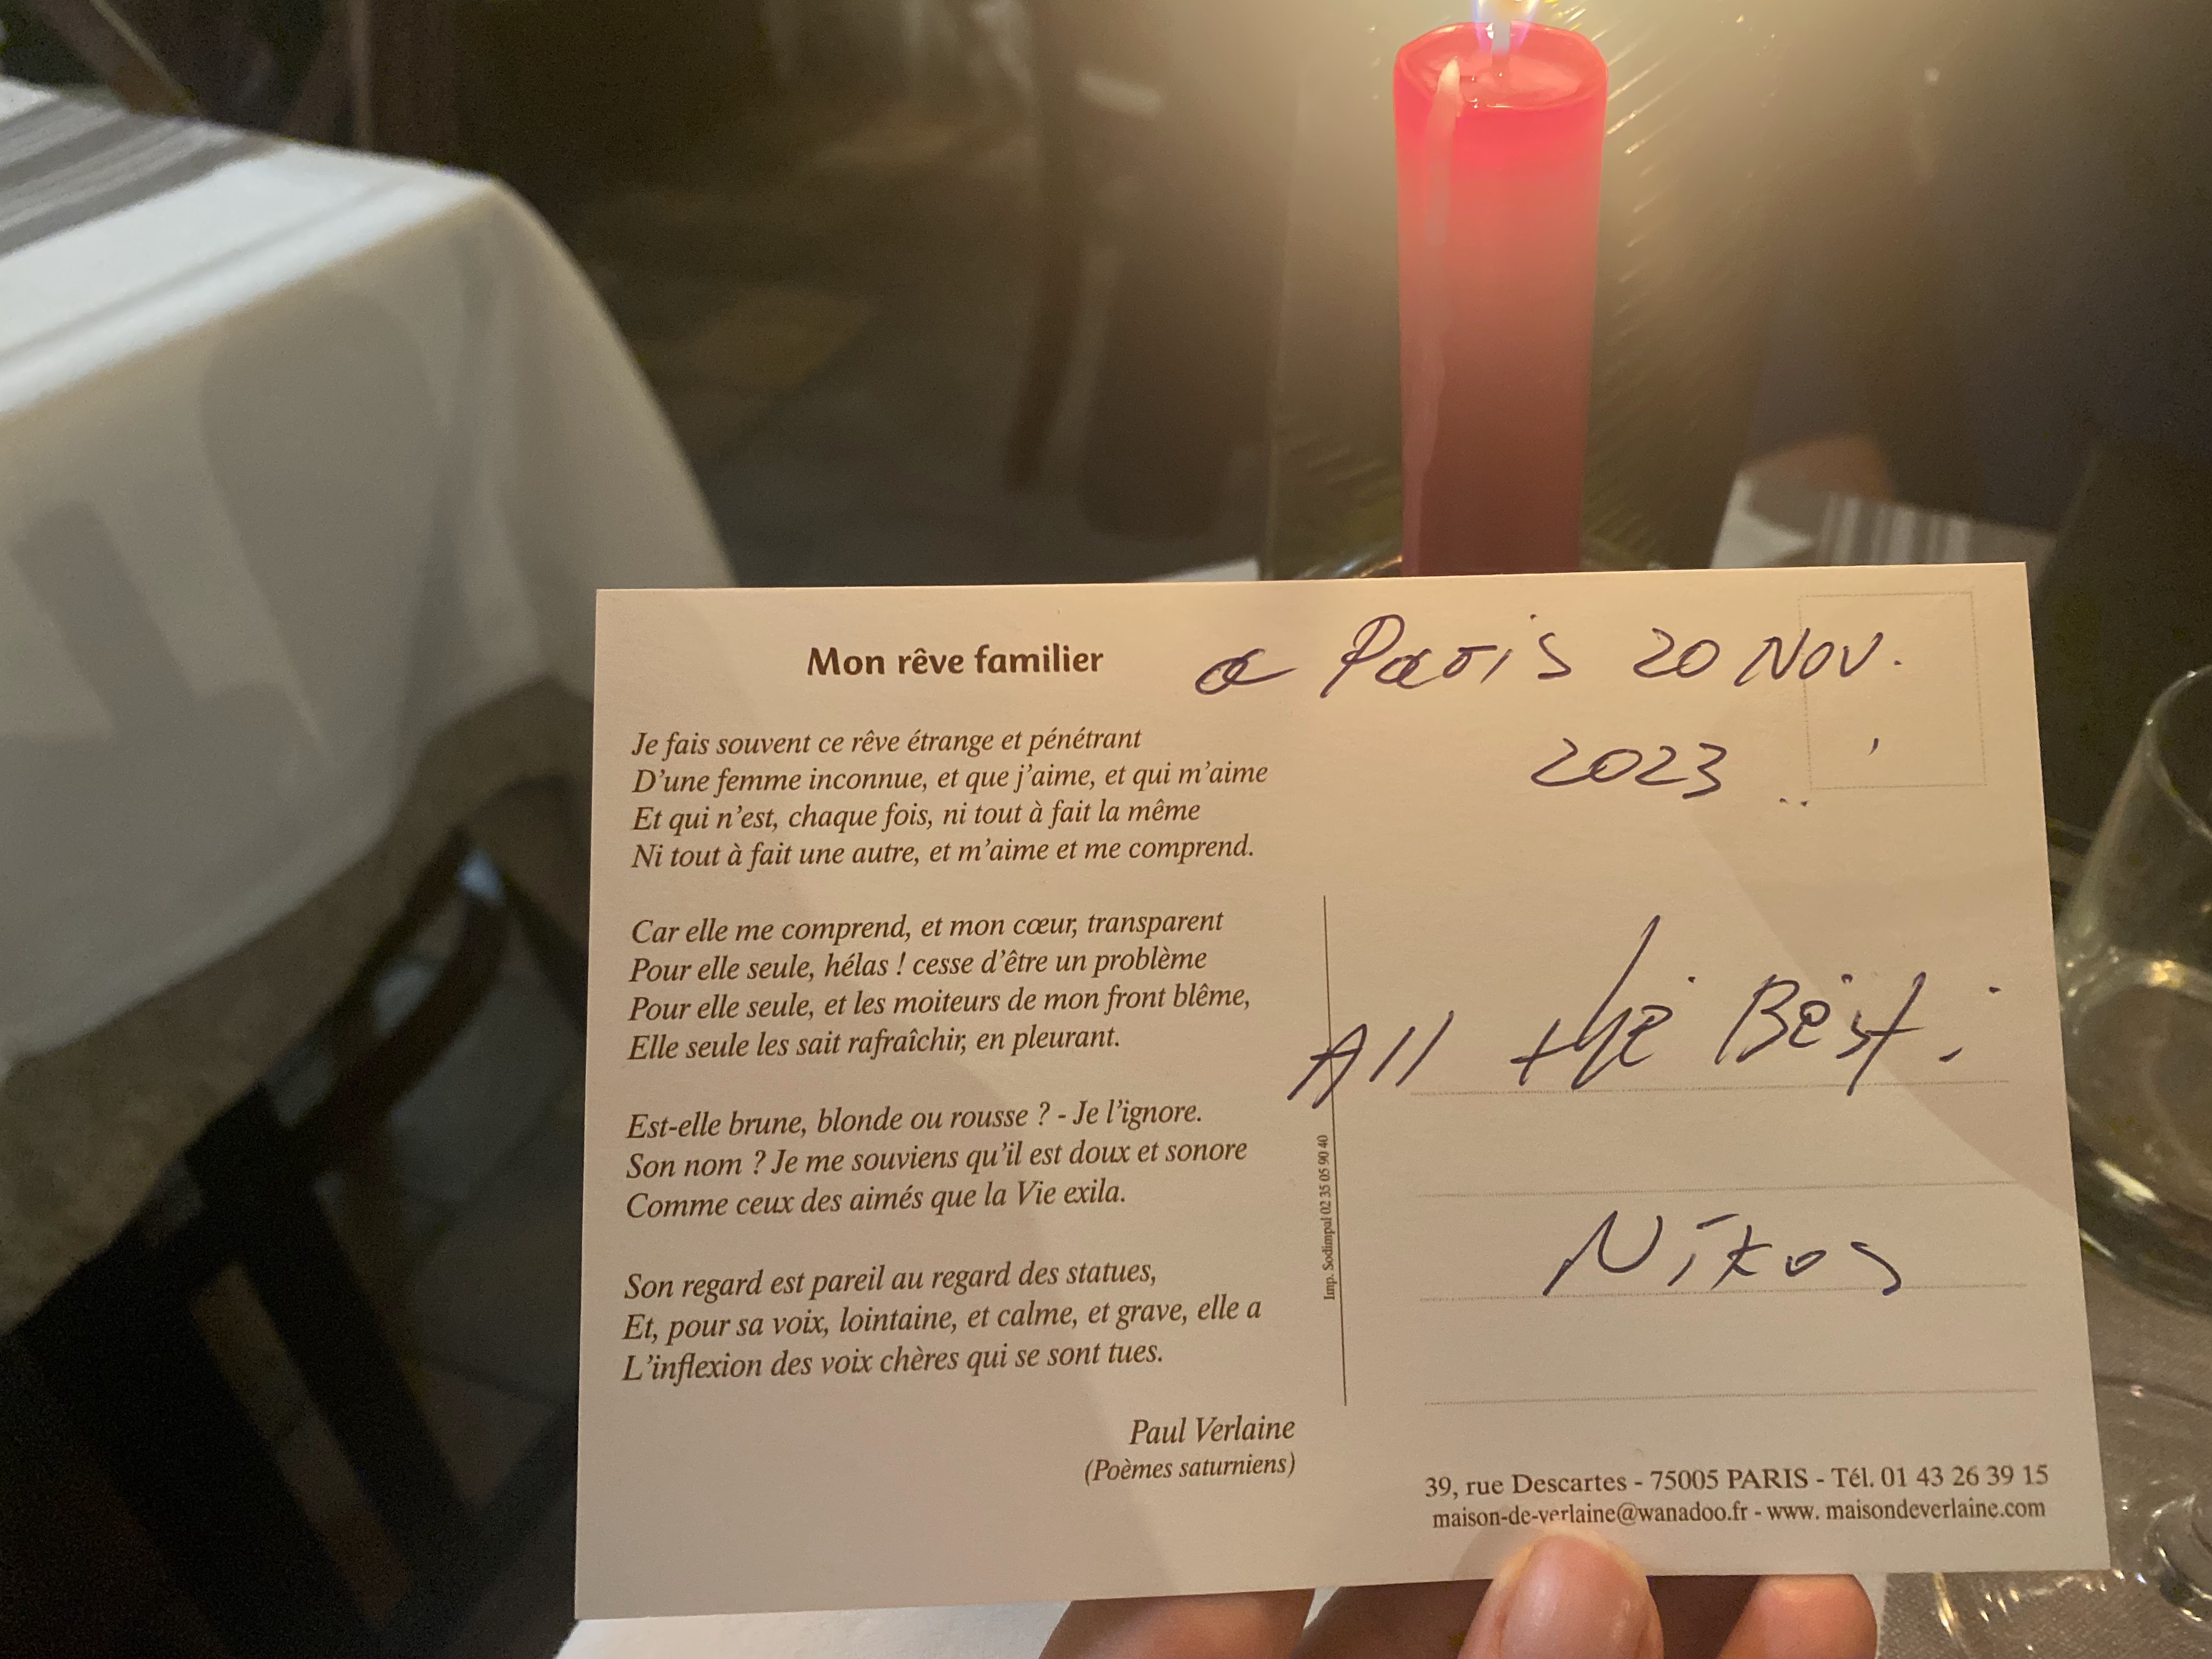 Mon rêve familier
Je fais souvent ce rêve étrange et pénétrant
D'une femme inconnue, et que j'aime, et qui m'aime
Et qui n'est, chaque fois, ni tout à fait la même
Ni tout à fait une autre, et m'aime et me comprend.
Car elle me comprend, et mon cœur, transparent
Pour elle seule, hélas ! cesse d'être un problème
Pour elle seule, et les moiteurs de mon front blême,
Elle seule les sait rafraîchir, en pleurant.
Est-elle brune, blonde ou rousse ? - Je l'ignore.
Son nom ? Je me souviens qu'il est doux et sonore
Comme ceux des aimés que la Vie exila.
Son regard est pareil au regard des statues,
Et, pour sa voix, lointaine, et calme, et grave, elle a
L'inflexion des voix chères qui se sont tues.
Paul Verlaine
(Poèmes saturniens)
Imp. Sodimpal 02 35 05 90 40
a Paris 20 Nov.
2023
All the Best
Nikos
39, rue Descartes - 75005 PARIS - Tél. 01 43 26 39 15
maison-de-verlaine@wanadoo.fr - www. maisondeverlaine.com